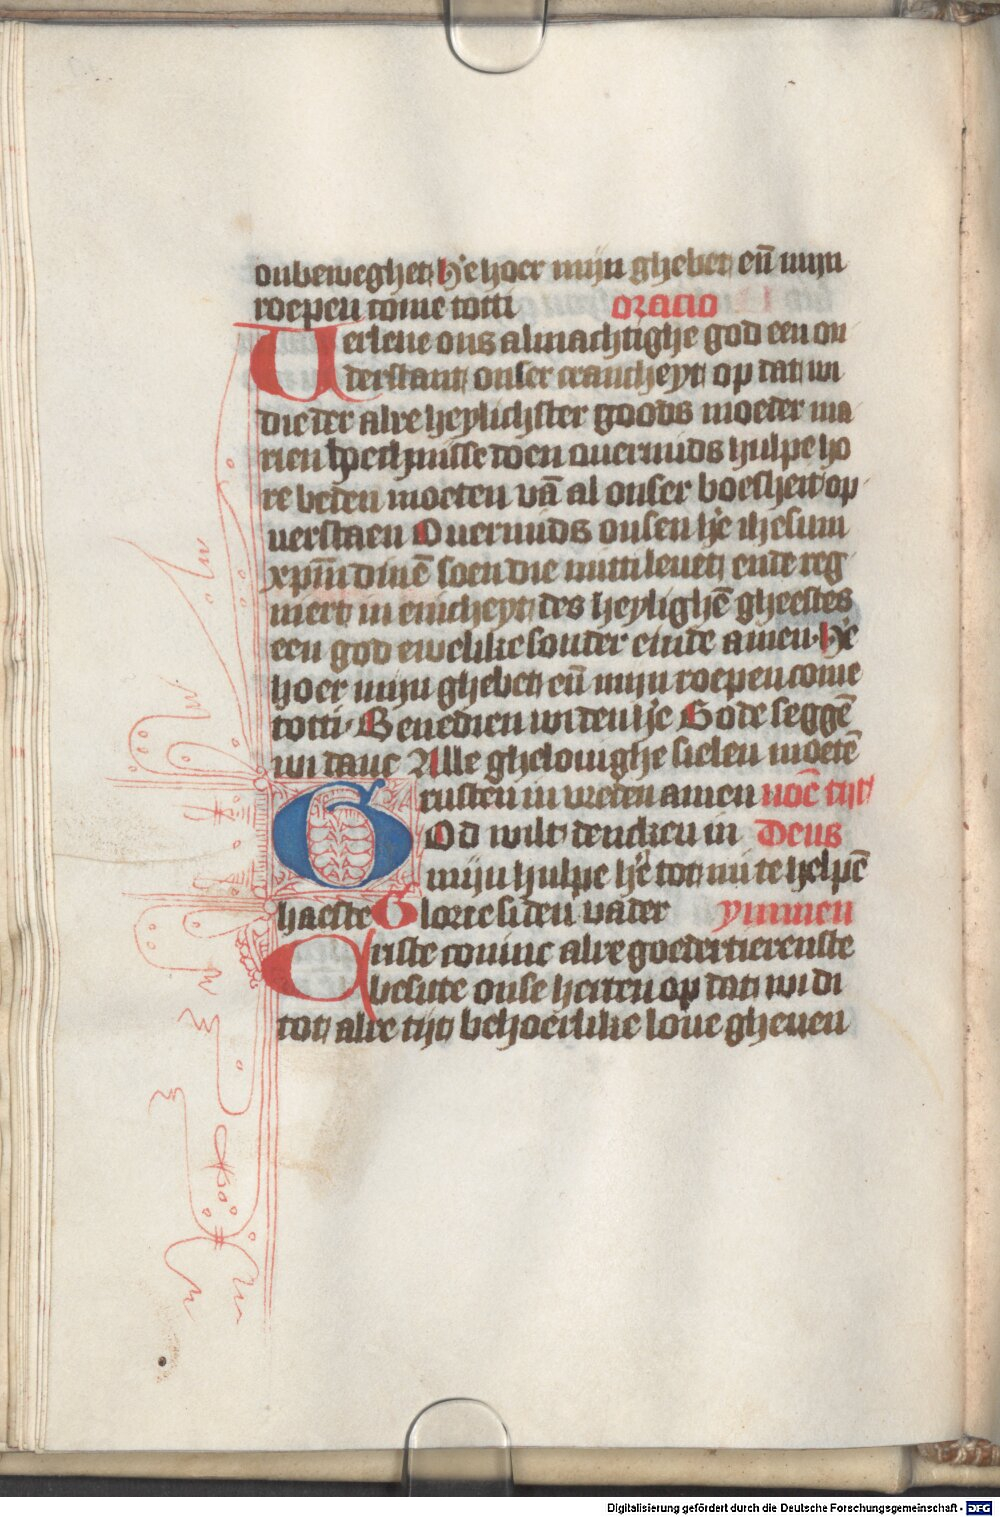 onbeweghet He hoer mijn ghebet eñ mijn
roepen come totti oracio
Uerlene ons almachtighe god een on
derstant onser crancheyt op dat wi
die der alre heylichster goods moeder ma
rien ghedechnisse doen ouermids hulpe ho
re beden moeten vā al onser bosheit op
uerstaen Ouermids onsen he ihesum
xpm̄ dinē soen die mitti leuet ende reg
niert in enicheyt des heylighē gheestes
een god ewelike sonder einde amen He
hoer mijn ghebet eñ mijn roepen come
totti Benedien wi den he Gode seggē
wi danc Alle ghelouighe sielen moetē
rusten in vreden amen noē tijt
God wilt dencken in Deus
mijn hulpe he tot mi te helpē
haeste Glorie si den vader ymmen
Criste coninc alre goedertierenste
besitte onse herten op dat wi di
tot alre tijt behoerlike loue gheuen
Digitalisierung gefördert durch die Deutsche Forschungsgemeinschaft - DFG